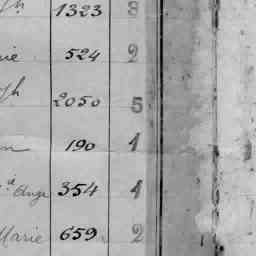 1323 3
524 2
2050 5
190 1
Ange 354 1
Marie 659 2